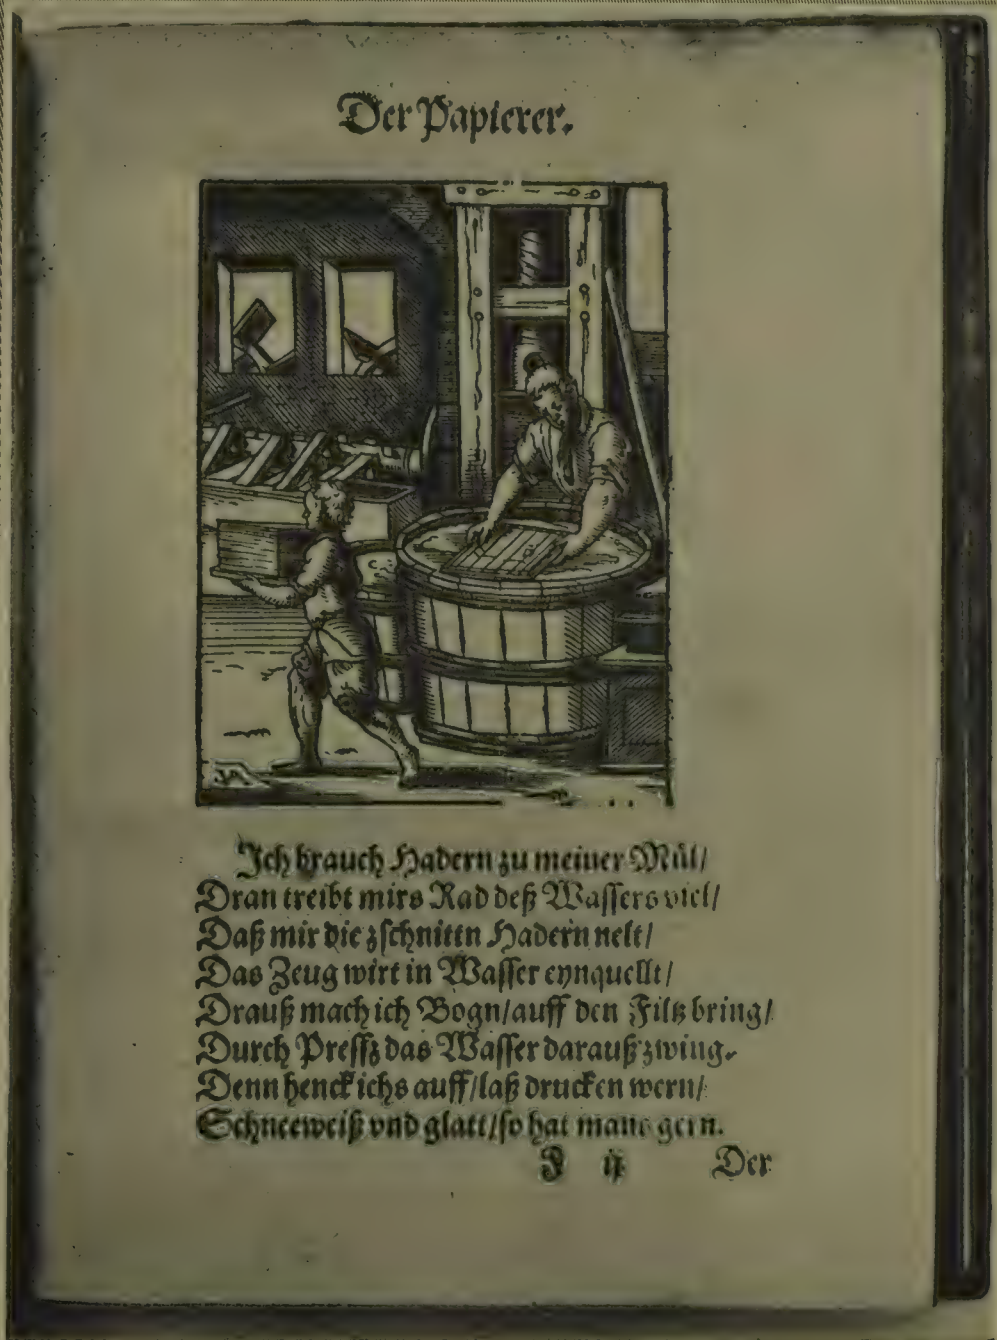 Der Papierer.
Ich brauch Hadern zu meiner Mül/
Dran treibt mirs Rad deß Wassers viel/
Daß mir die zschnittn Hadern nelt/
Das Zeug wirt in Wasser eynquellt/
Drauß mach ich Bogn/auff den Filtz bring/
Durch Preß das Wasser darauß zwing.
Denn henck ichs auff/laß drucken wern/
Schneeweiß vnd glatt/so hat mans gern.
F ij Der